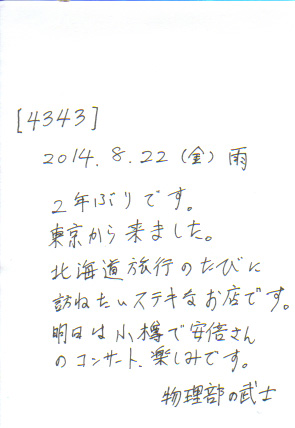 [4343]
2014.8.22(金)雨
2年ぶりです。
東京から来ました。
北海道旅行のたびに
訪ねたいステキなお店です。
明日は小樽で安倍さん
のコンサート、楽しみです。
物理部の武士